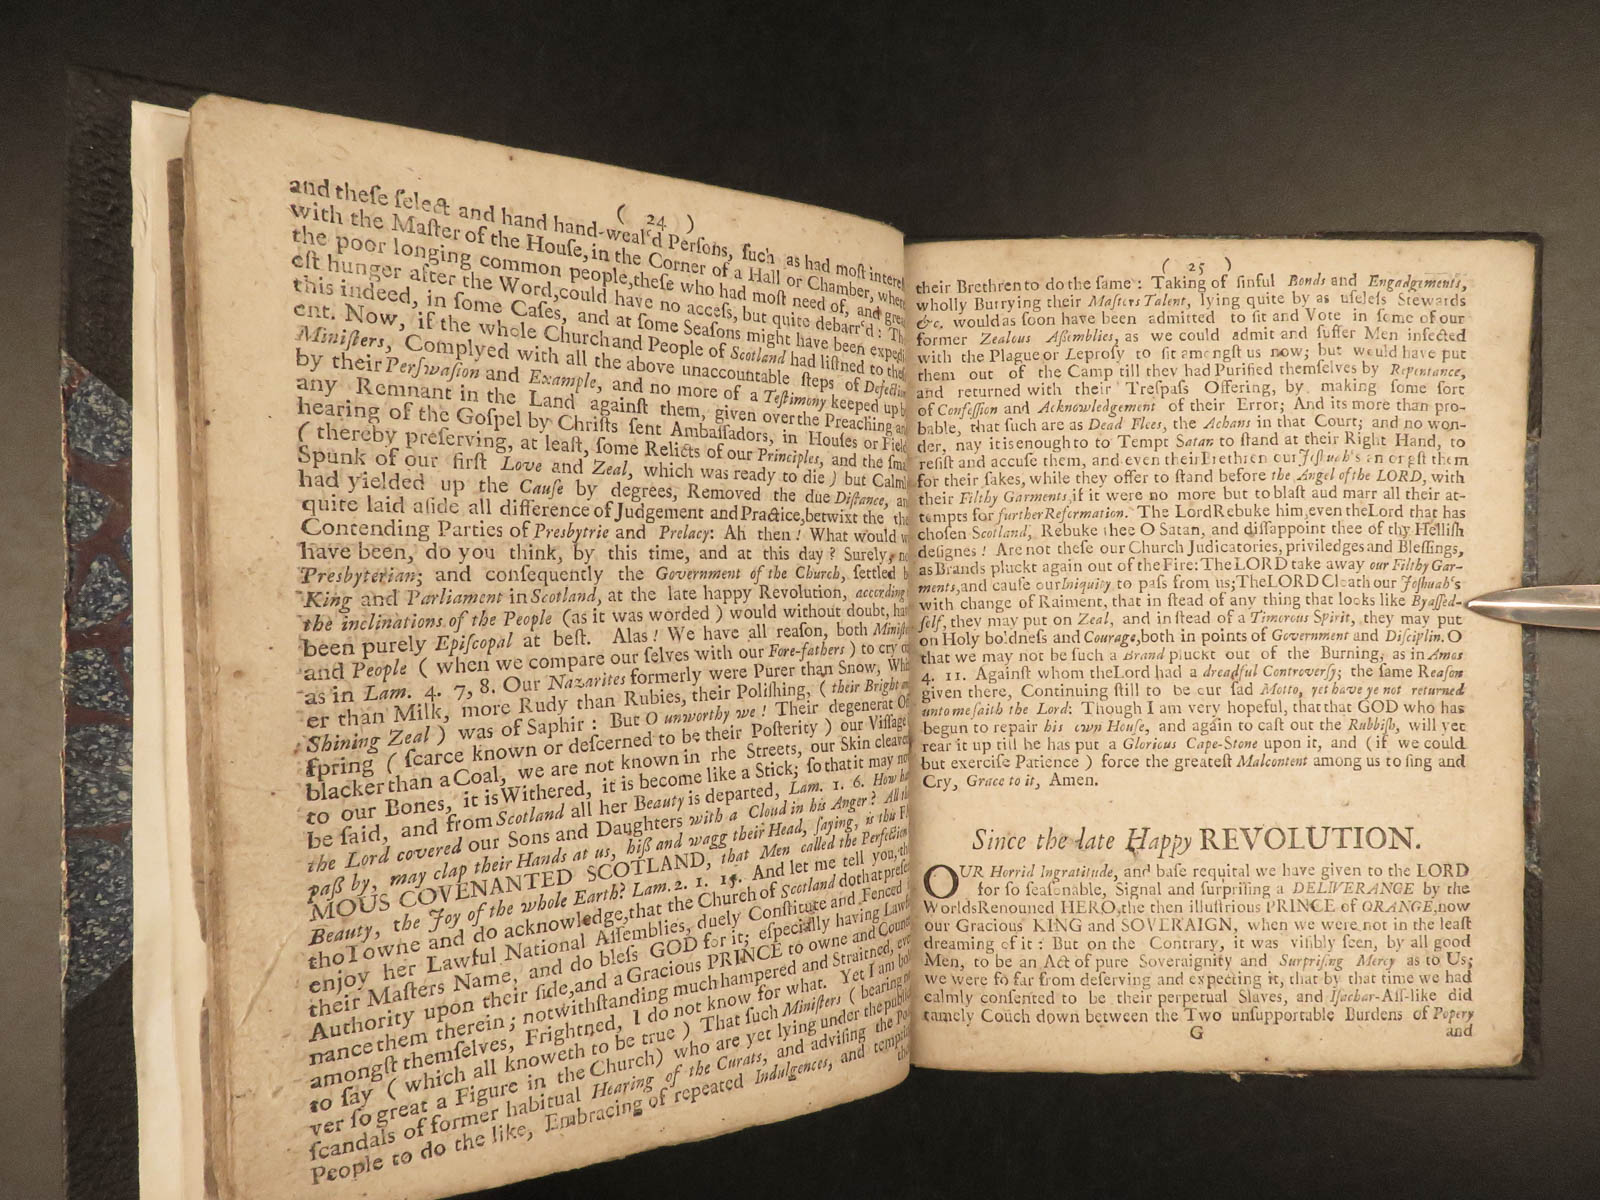 ( 24 )
and these select and hand hand-weal'd Persons, such as had most interest
with the Master of the House, in the Corner of a Hall or Chamber, where
the poor longing common people, these who had most need of, and great
est hunger after the Word, could have no access, but quite debarr'd:
this indeed, in some Cases, and at some Seasons might have been
ent. Now, if the whole Church and People of Scotland had listned to
Ministers, Complyed with all the above unaccountable steps of
by their Perswasion and Example, and no more of a Testimony keeped up
any Remnant in the Land against them, given over the Preaching
hearing of the Gospel by Christs sent Ambassadors, in Houses or
( thereby preserving, at least, some Relicts of our Principles, and the
Spunk of our first Love and Zeal, which was ready to die ) but
had yielded up the Cause by degrees, Removed the due Distance,
quite laid aside all difference of Judgement and Practice, betwixt the
Contending Parties of Presbytrie and Prelacy: Ah then! What would
have been, do you think, by this time, and at this day? Surely,
Presbyterian; and consequently the Government of the Church, settled
King and Parliament in Scotland, at the late happy Revolution,
the inclinations of the People (as it was worded ) would without doubt,
been purely Episcopal at best. Alas! We have all reason, both
and People ( when we compare our selves with our Fore-fathers ) to cry
as in Lam. 4. 7, 8. Our Nazarites formerly were Purer than Snow,
er than Milk, more Rudy than Rubies, their Polishing, ( their
Shining Zeal ) was of Saphir : But O unworthy we! Their degenerat
spring ( scarce known or descerned to be their Posterity ) our
blacker than a Coal, we are not known in rhe Streets, our Skin
to our Bones, it is Withered, it is become like a Stick; so that it may
be said, and from Scotland all her Beauty is departed, Lam. 1. 6. How
the Lord covered our Sons and Daughters with a Cloud in his Anger?
pass by, may clap their Hands at us, hiss and wagg their Head, saying, is this
MOUS COVENANTED SCOTLAND, that Men called the
Beauty, the Joy of the whole Earth? Lam. 2. 1. 15. And let me tell you,
tho I owne and do acknowledge, that the Church of Scotland doth at
enjoy her Lawful National Assemblies, duely Constitute and Fenced
their Masters Name, and do bless GOD for it; especially having
Authority upon their side, and a Gracious PRINCE to owne and
nance them therein; notwithstanding much hampered and Straitned,
amongst themselves, Frightned, I do not know for what. Yet I am
to say ( which all knoweth to be true ) That such Ministers (
ver so great a Figure in the Church) who are yet lying under the
scandals of former habitual Hearing of the Curats, and advising the
People to do the like, Embracing of repeated Indulgences, and
( 25 )
their Brethren to do the same : Taking of sinful Bonds and Engadgements,
wholly Burrying their Masters Talent, lying quite by as useless Stewards
&c. would as soon have been admitted to sit and Vote in some of our
former Zealous Assemblies, as we could admit and suffer Men infected
with the Plague or Leprosy to sit amongst us now; but would have put
them out of the Camp till they had Purified themselves by Repentance,
and returned with their Trespass Offering, by making some sort
of Confession and Acknowledgement of their Error; And its more than pro-
bable, that such are as Dead Flees, the Achans in that Court; and no won-
der, nay it is enough to to Tempt Satan to stand at their Right Hand, to
resist and accuse them, and even their Brethren our Joshuah's amongst them
for their sakes, while they offer to stand before the Angel of the LORD, with
their Filthy Garments, if it were no more but to blast aud marr all their at-
tempts for further Reformation. The Lord Rebuke him, even the Lord that has
chosen Scotland, Rebuke thee O Satan, and dissappoint thee of thy Hellish
designes! Are not these our Church Judicatories, priviledges and Blessings,
as Brands pluckt again out of the Fire: The LORD take away our Filthy Gar-
ments, and cause our Iniquity to pass from us; The LORD Cloath our Joshuah's
with change of Raiment, that in stead of any thing that looks like Byassed-
self, they may put on Zeal, and in stead of a Timorous Spirit, they may put
on Holy boldness and Courage, both in points of Government and Disciplin. O
that we may not be such a Brand pluckt out of the Burning, as in Amos
4. 11. Against whom the Lord had a dreadful Controversy; the same Reason
given there, Continuing still to be our sad Motto, yet have ye not returned
unto me saith the Lord: Though I am very hopeful, that that GOD who has
begun to repair his own House, and again to cast out the Rubbish, will yet
rear it up till he has put a Glorious Cape-Stone upon it, and ( if we could
but exercise Patience ) force the greatest Malcontent among us to sing and
Cry, Grace to it, Amen.
Since the late Happy REVOLUTION.
OUR Horrid Ingratitude, and base requital we have given to the LORD
for so seasonable, Signal and surprising a DELIVERANGE by the
Worlds Renouned HERO, the then illustrious PRINCE of ORANGE, now
our Gracious KING and SOVERAIGN, when we were not in the least
dreaming of it : But on the Contrary, it was visibly seen, by all good
Men, to be an Act of pure Soveraignity and Surprising Mercy as to Us;
we were so far from deserving and expecting it, that by that time we had
calmly consented to be their perpetual Slaves, and Isachar-Ass-like did
tamely Couch down between the Two unsupportable Burdens of Popery
G and